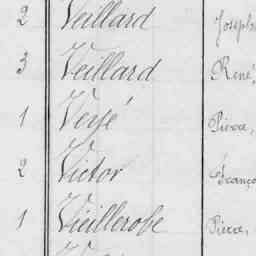 2 Veillard Joseph
3 Veillard René,
1 Versé Pierre,
2 Victor Franço
1 Vieillerobe Pierre,